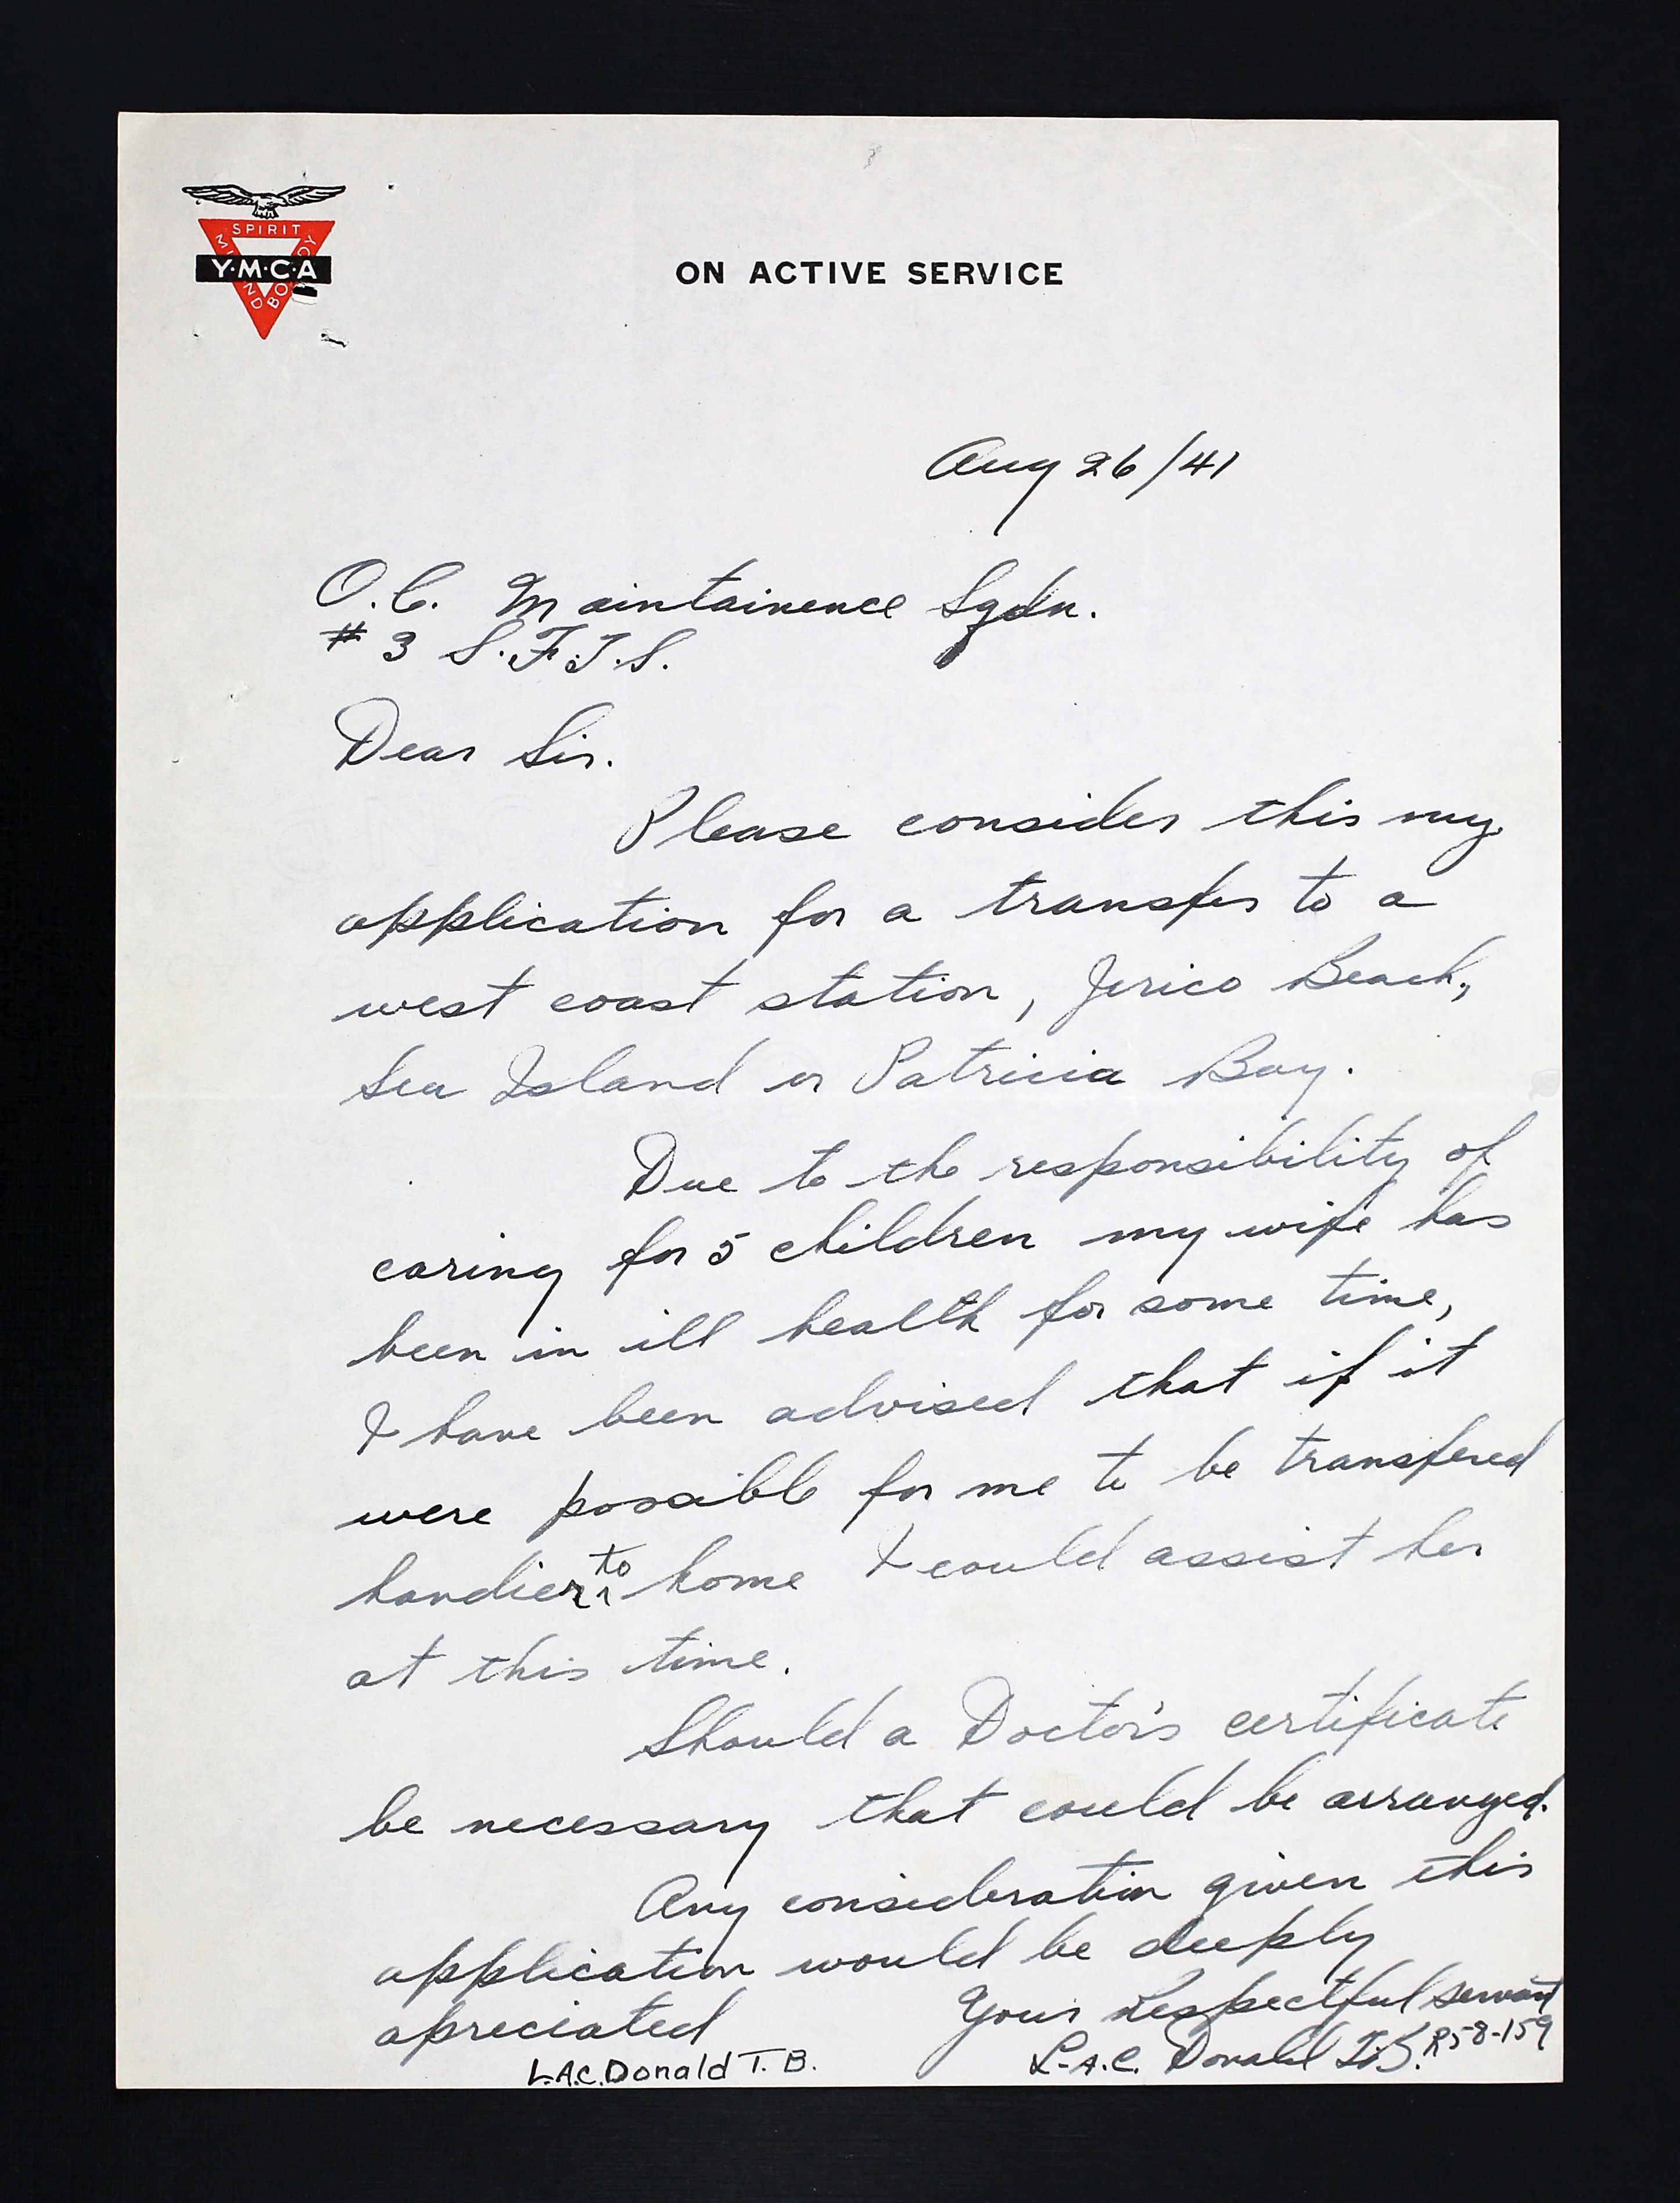 SPIRIT
MIND
BODY
Y·M·C·A
ON ACTIVE SERVICE
Aug 26/41
O.C. Maintainence Sqdn.
# 3 S.F.T.S.
Dear Sir.
Please consider this my
application for a transfer to a
west coast station, Jerico Beach,
Sea Island or Patricia Bay.
Due to the responsibility of
caring for 5 children my wife has
been in ill health for some time,
I have been advised that if it
were possible for me to be transfered
handier to home I could assist her
at this time.
Should a Doctor's certificate
be necessary that could be arranged.
Any consideration given this
application would be deeply
apreciated
Your Respectful servant
L.A.C. Donald T.B. R58-159
L.A.C. Donald T. B.